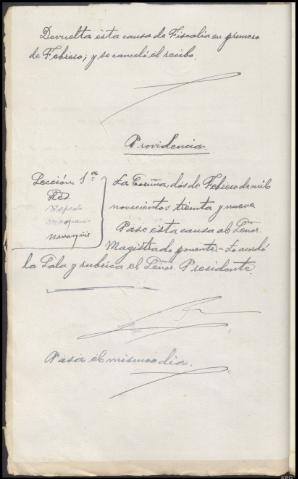 Devuelta esta causa de Fiscalía en primero
de Febrero; y se canceló el recibo
Providencia
Sección 1ª
La Coruña, dos de Febrero de mil
novecientos treinta y nueve
Pase esta causa al Señor
Magistrado ponente. Lo acordó
la Sala y rubrica el Señor Presidente
Pasa el mismo día.